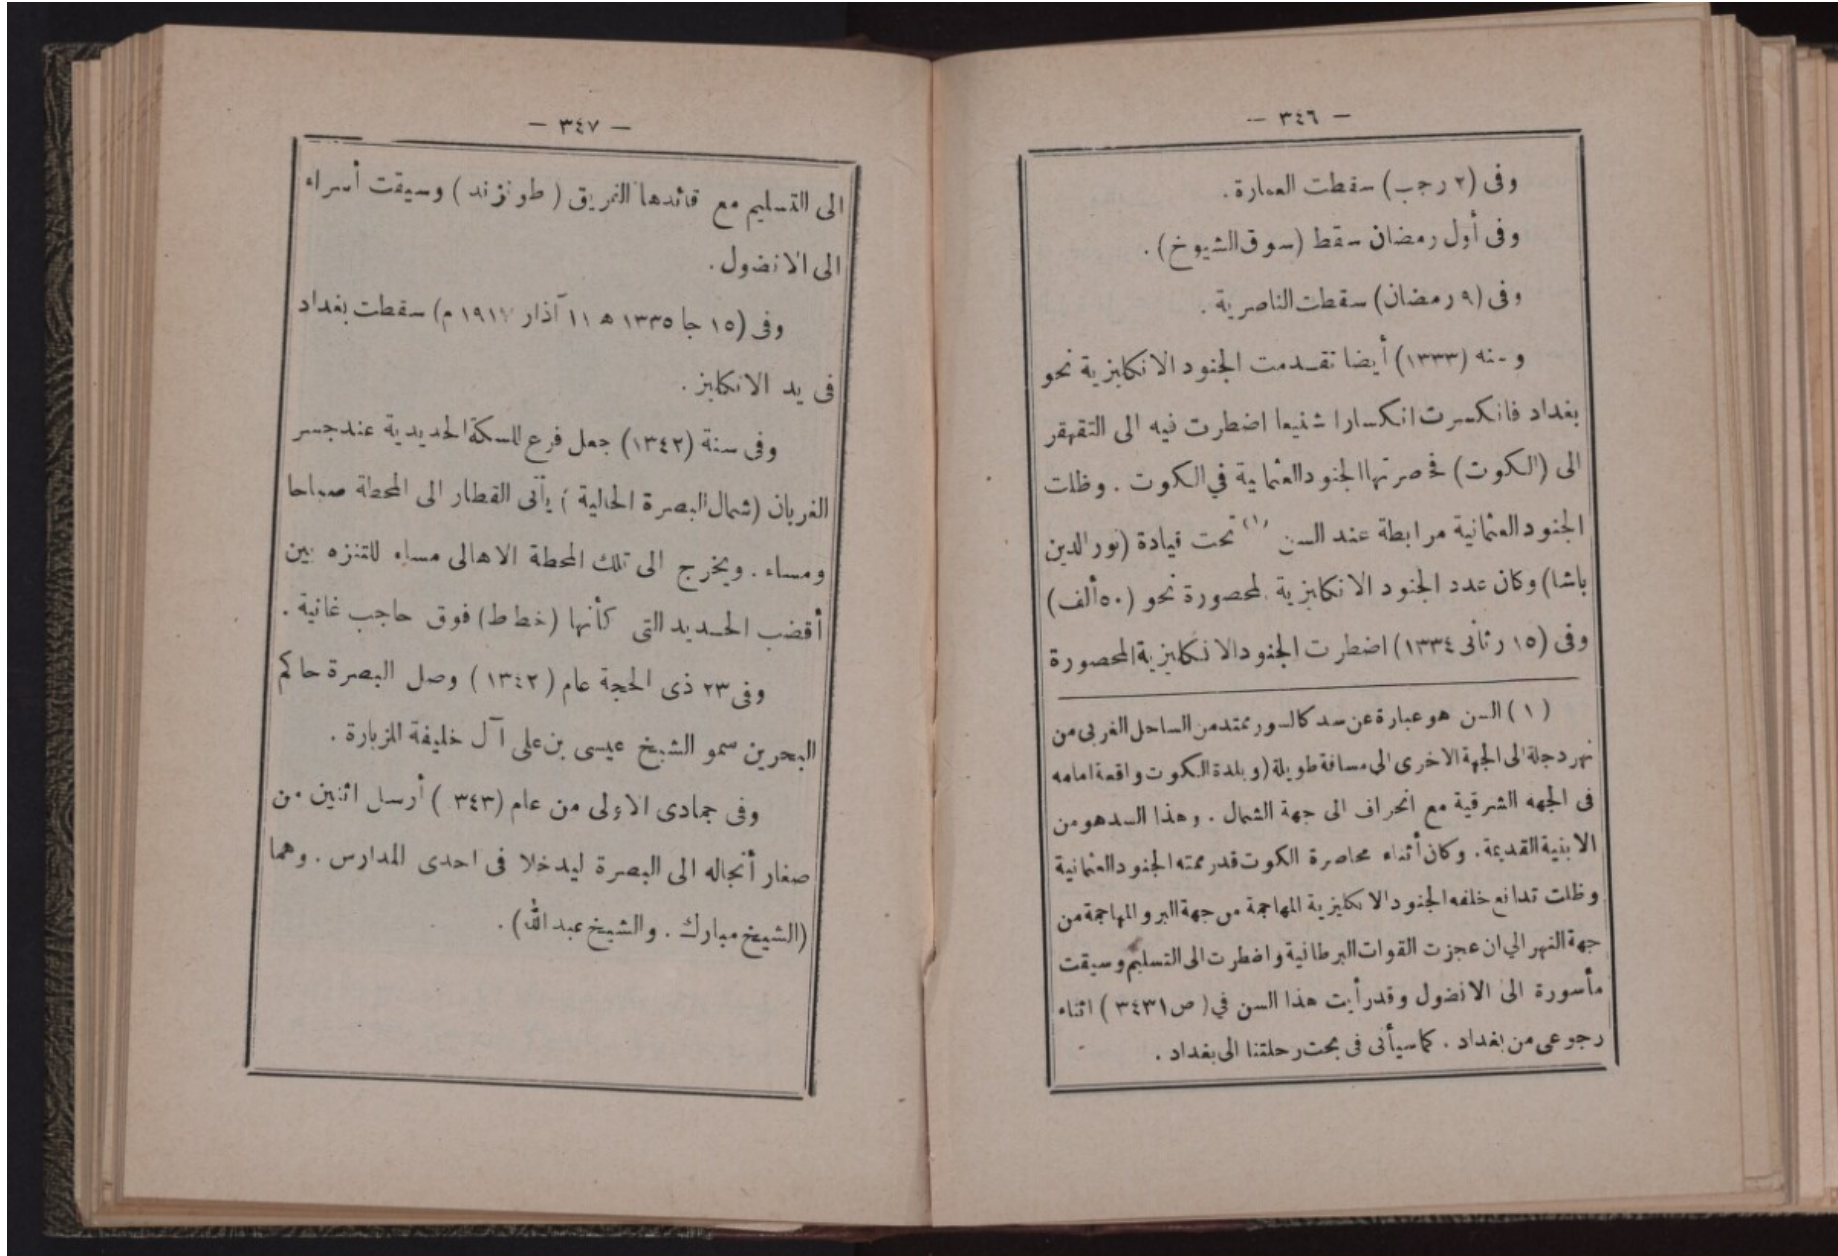 — ٣٤٦ —
وفى (٢ رجب) سقطت العمارة.
وفى أول رمضان سقط (سوق الشيوخ).
وفى (٩ رمضان) سقطت الناصرية.
(١٣٣٣) أيضا تقدمت الجنود الانكليزية نحو
بغداد فانكسرت انكسارا شنيعا اضطرت فيه الى التقهقر
الى (الكوت) فحصرتها الجنود العثمانية في الكوت. وظلت
الجنود العثمانية مرابطة عند السن (١) تحت قيادة (نور الدين
باشا) وكان عدد الجنود الانكليزية المحصورة نحو (٥٠ ألف)
وفى (١٥ رثانى ١٣٣٤) اضطرت الجنود الانكليزية المحصورة
(١) السن هو عبارة عن سد كالسور ممتد من الساحل الغربى من
نهر دجلة الى الجهة الاخرى الى مسافة طويلة (وبلدة الكوت واقعة امامه
فى الجهه الشرقية مع انحراف الى جهة الشمال. وهذا السد هو من
الابنية القديمة. وكان أثناء محاصرة الكوت قد رممته الجنود العثمانية
وظلت تدافع خلفه الجنود الانكليزية المهاجمة من جهة البر والمهاجمة من
جهة النهر الي ان عجزت القوات البرطانية واضطرت الى التسليم وسيقت
مأسورة الى الانضول وقد رأيت هذا السن في (ص ٣٤٣١) اثناء
رجوعى من بغداد. كما سيأتى فى بحث رحلتنا الى بغداد.
— ٣٤٧ —
الى التسليم مع قائدها الفريق (طونزند) وسيقت أسراء
الى الانضول.
وفى (١٥ جا ١٣٣٥ هـ ١١ آذار ١٩١٧ م) سقطت بغداد
فى يد الانكليز.
وفى سنة (١٣٤٢) جعل فرع للسكة الحديدية عند جسر
الغربان (شمال البصرة الحالية) يأتى القطار الى المحطة صباحا
ومساء. ويخرج الى تلك المحطة الاهالى مساء للتنزه بين
أقضب الحديد التى كأنها (خطاط) فوق حاجب غانية.
وفى ٢٣ ذى الحجة عام (١٣٤٢) وصل البصرة حاكم
البحرين سمو الشيخ عيسى بن على آل خليفة للزيارة.
وفى جمادى الاولى من عام (٣٤٣) أرسل اثنين من
صغار أنجاله الى البصرة ليدخلا فى احدى المدارس. وهما
(الشيخ مبارك. والشيخ عبد الله).